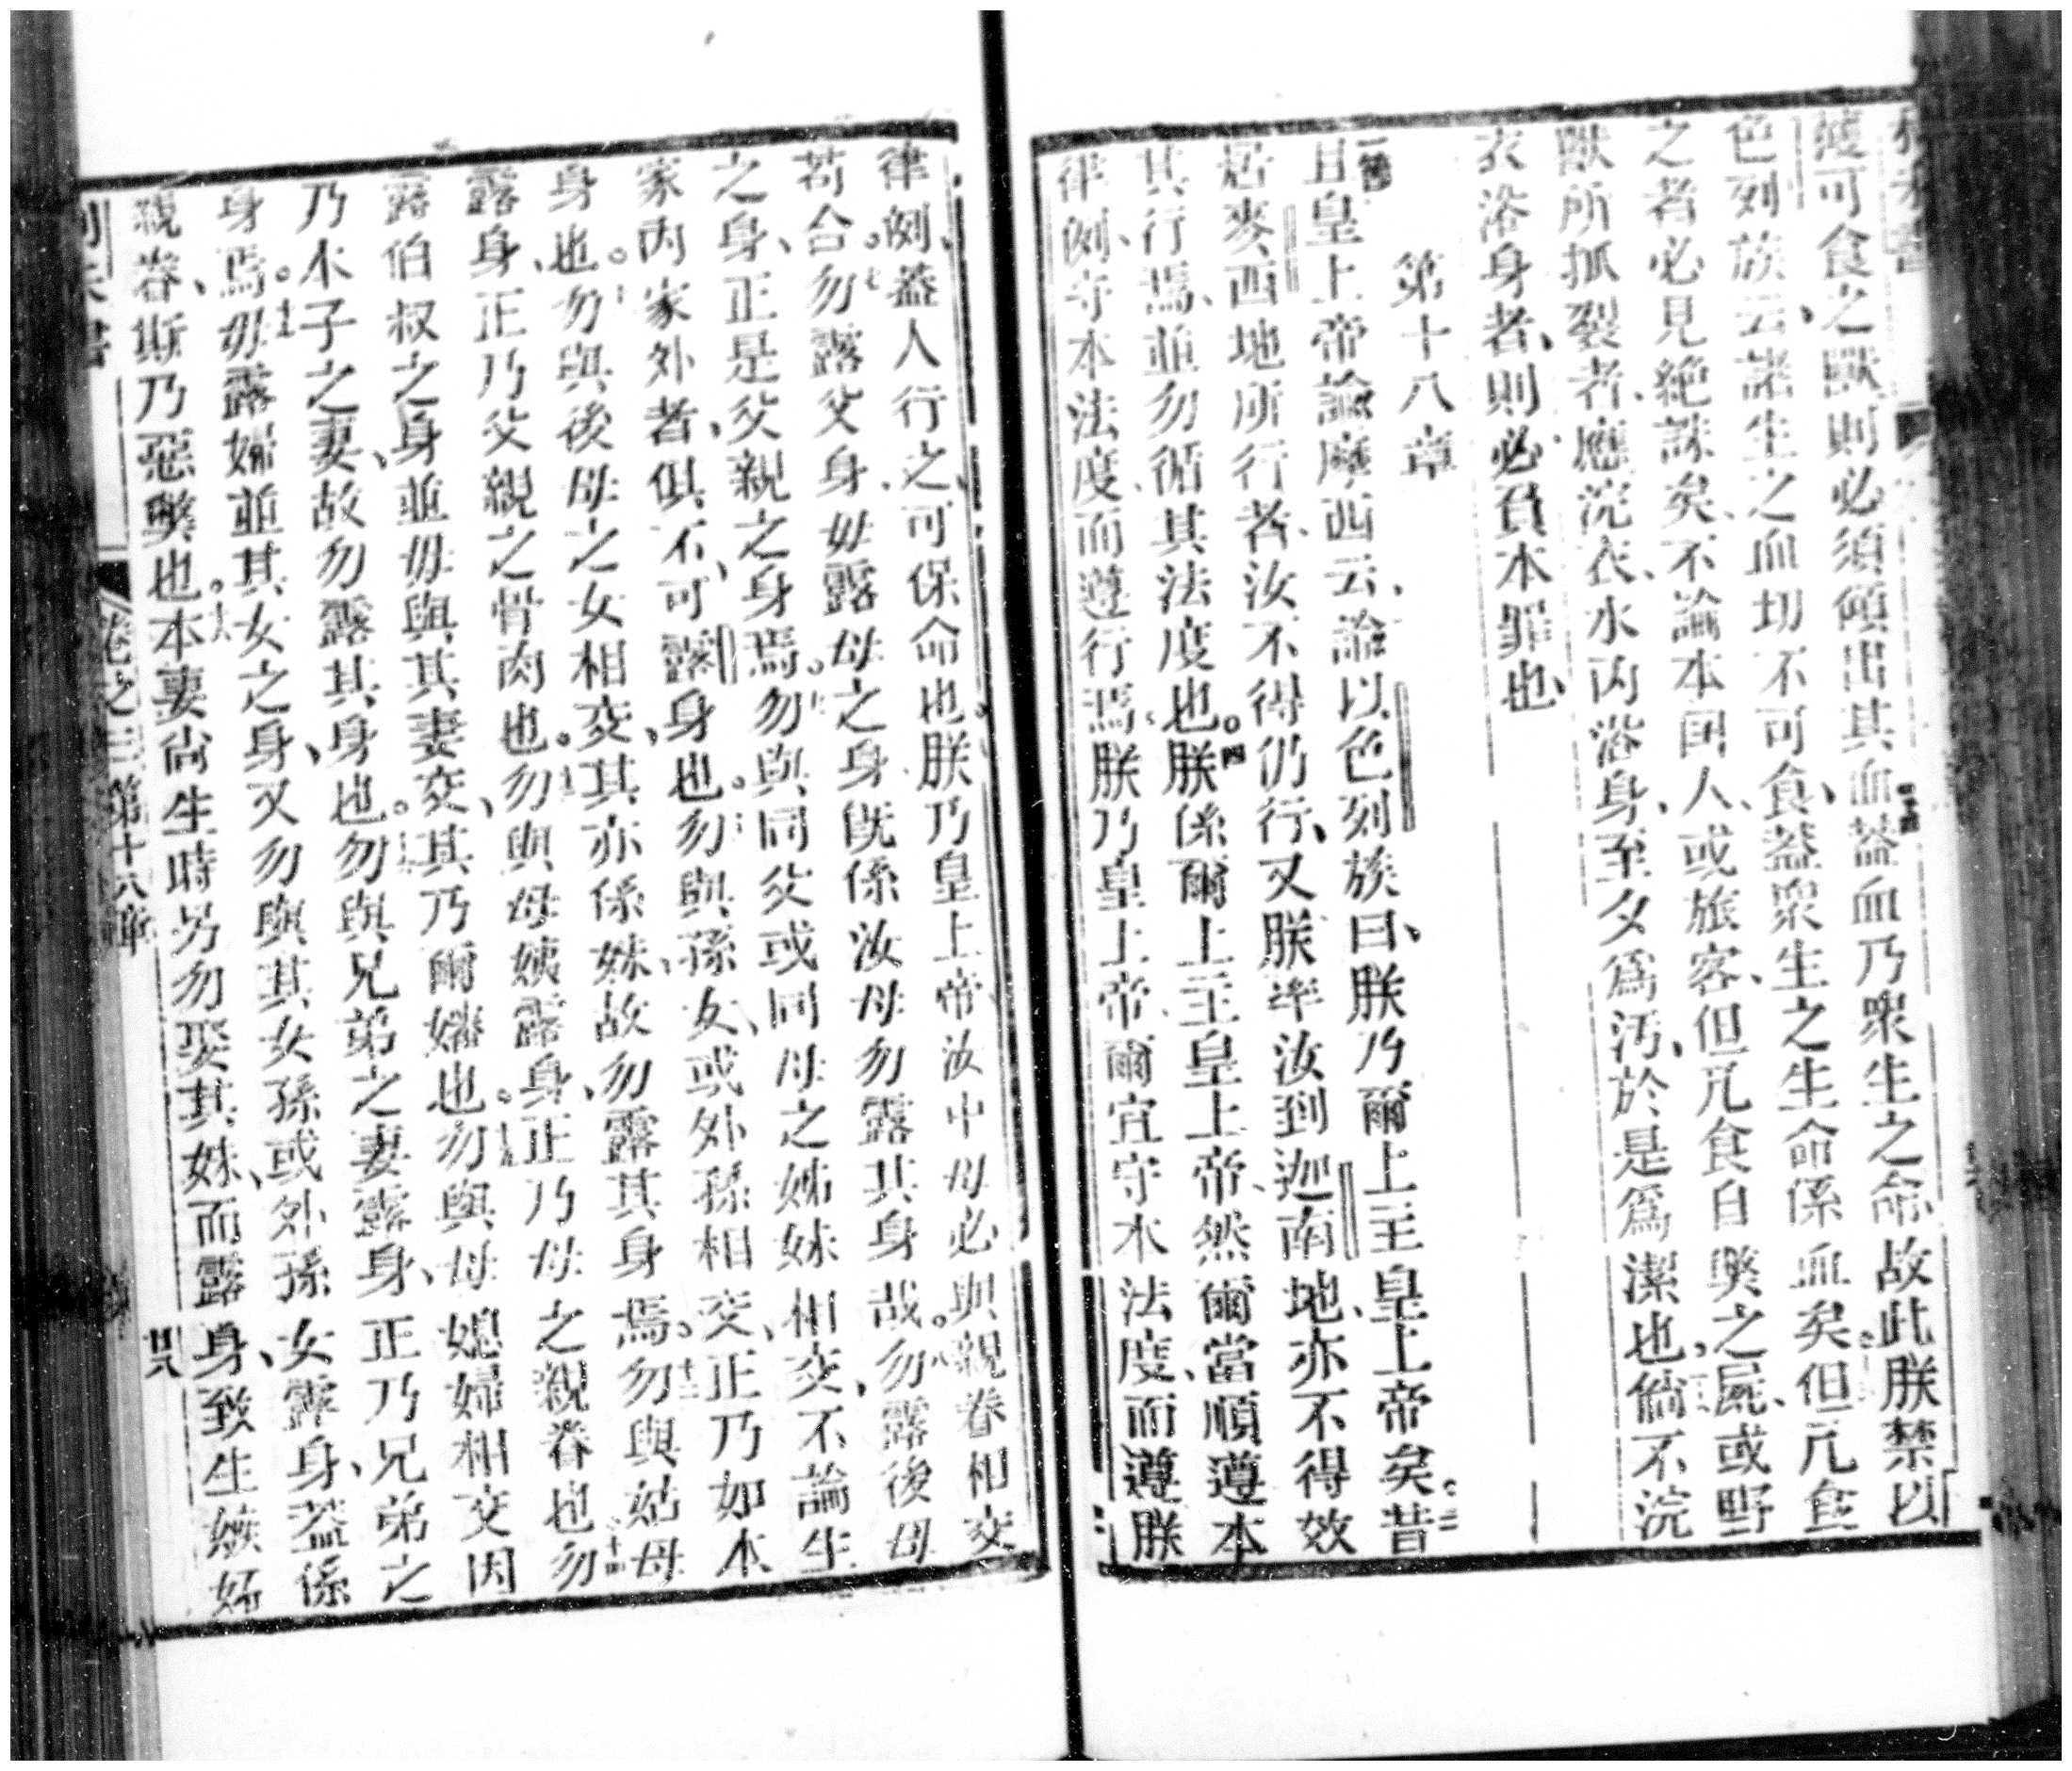 獲可食之獸則必須傾出其血蓋血乃衆生之命故此朕禁以
色列族云諸生之血切不可食蓋衆生之生命係血矣但凢食
之者必見絶誅矣不論本国人或旅客但凢食自斃之屍或野
獸所抓裂者應浣衣水內浴身至夕爲汚於是爲潔也倘不浣
衣浴身者則必負本罪也
第十八章
且皇上帝諭摩西云諭以色列族曰朕乃爾上主皇上帝矣昔二三
居麥西地所行者汝不得仍行又朕率汝到迦南地亦不得效
其行焉並勿循其法度也四朕係爾上主皇上帝然爾當順遵本
律例守本法度而遵行焉朕乃皇上帝爾宜守本法度而遵朕
律例蓋人行之可保命也朕乃皇上帝汝中毋必與親眷相交
苟合七勿露父身毋露母之身旣係汝母勿露其身哉八勿露後母
之身正是父親之身焉勿與同父或同母之姊妹相交不論生
家內家外者俱不可露身也勿與孫女或外孫相交正乃如本
身也勿與後母之女相交其亦係妹故勿露其身焉十二勿與姑母
露身正乃父親之骨肉也勿與母姨露身正乃母之親眷也十四勿
露伯叔之身並毋與其妻交其乃爾嬸也勿與母媳婦相交因
乃本子之妻故勿露其身也勿與兄弟之妻露身正乃兄弟之
身焉十七毋露婦並其女之身又勿與其女孫或外孫女露身蓋係
親眷斯乃惡弊也十八本妻尙生時另勿娶其妹而露身致生嫉妬
卷之三第十八章
廿八